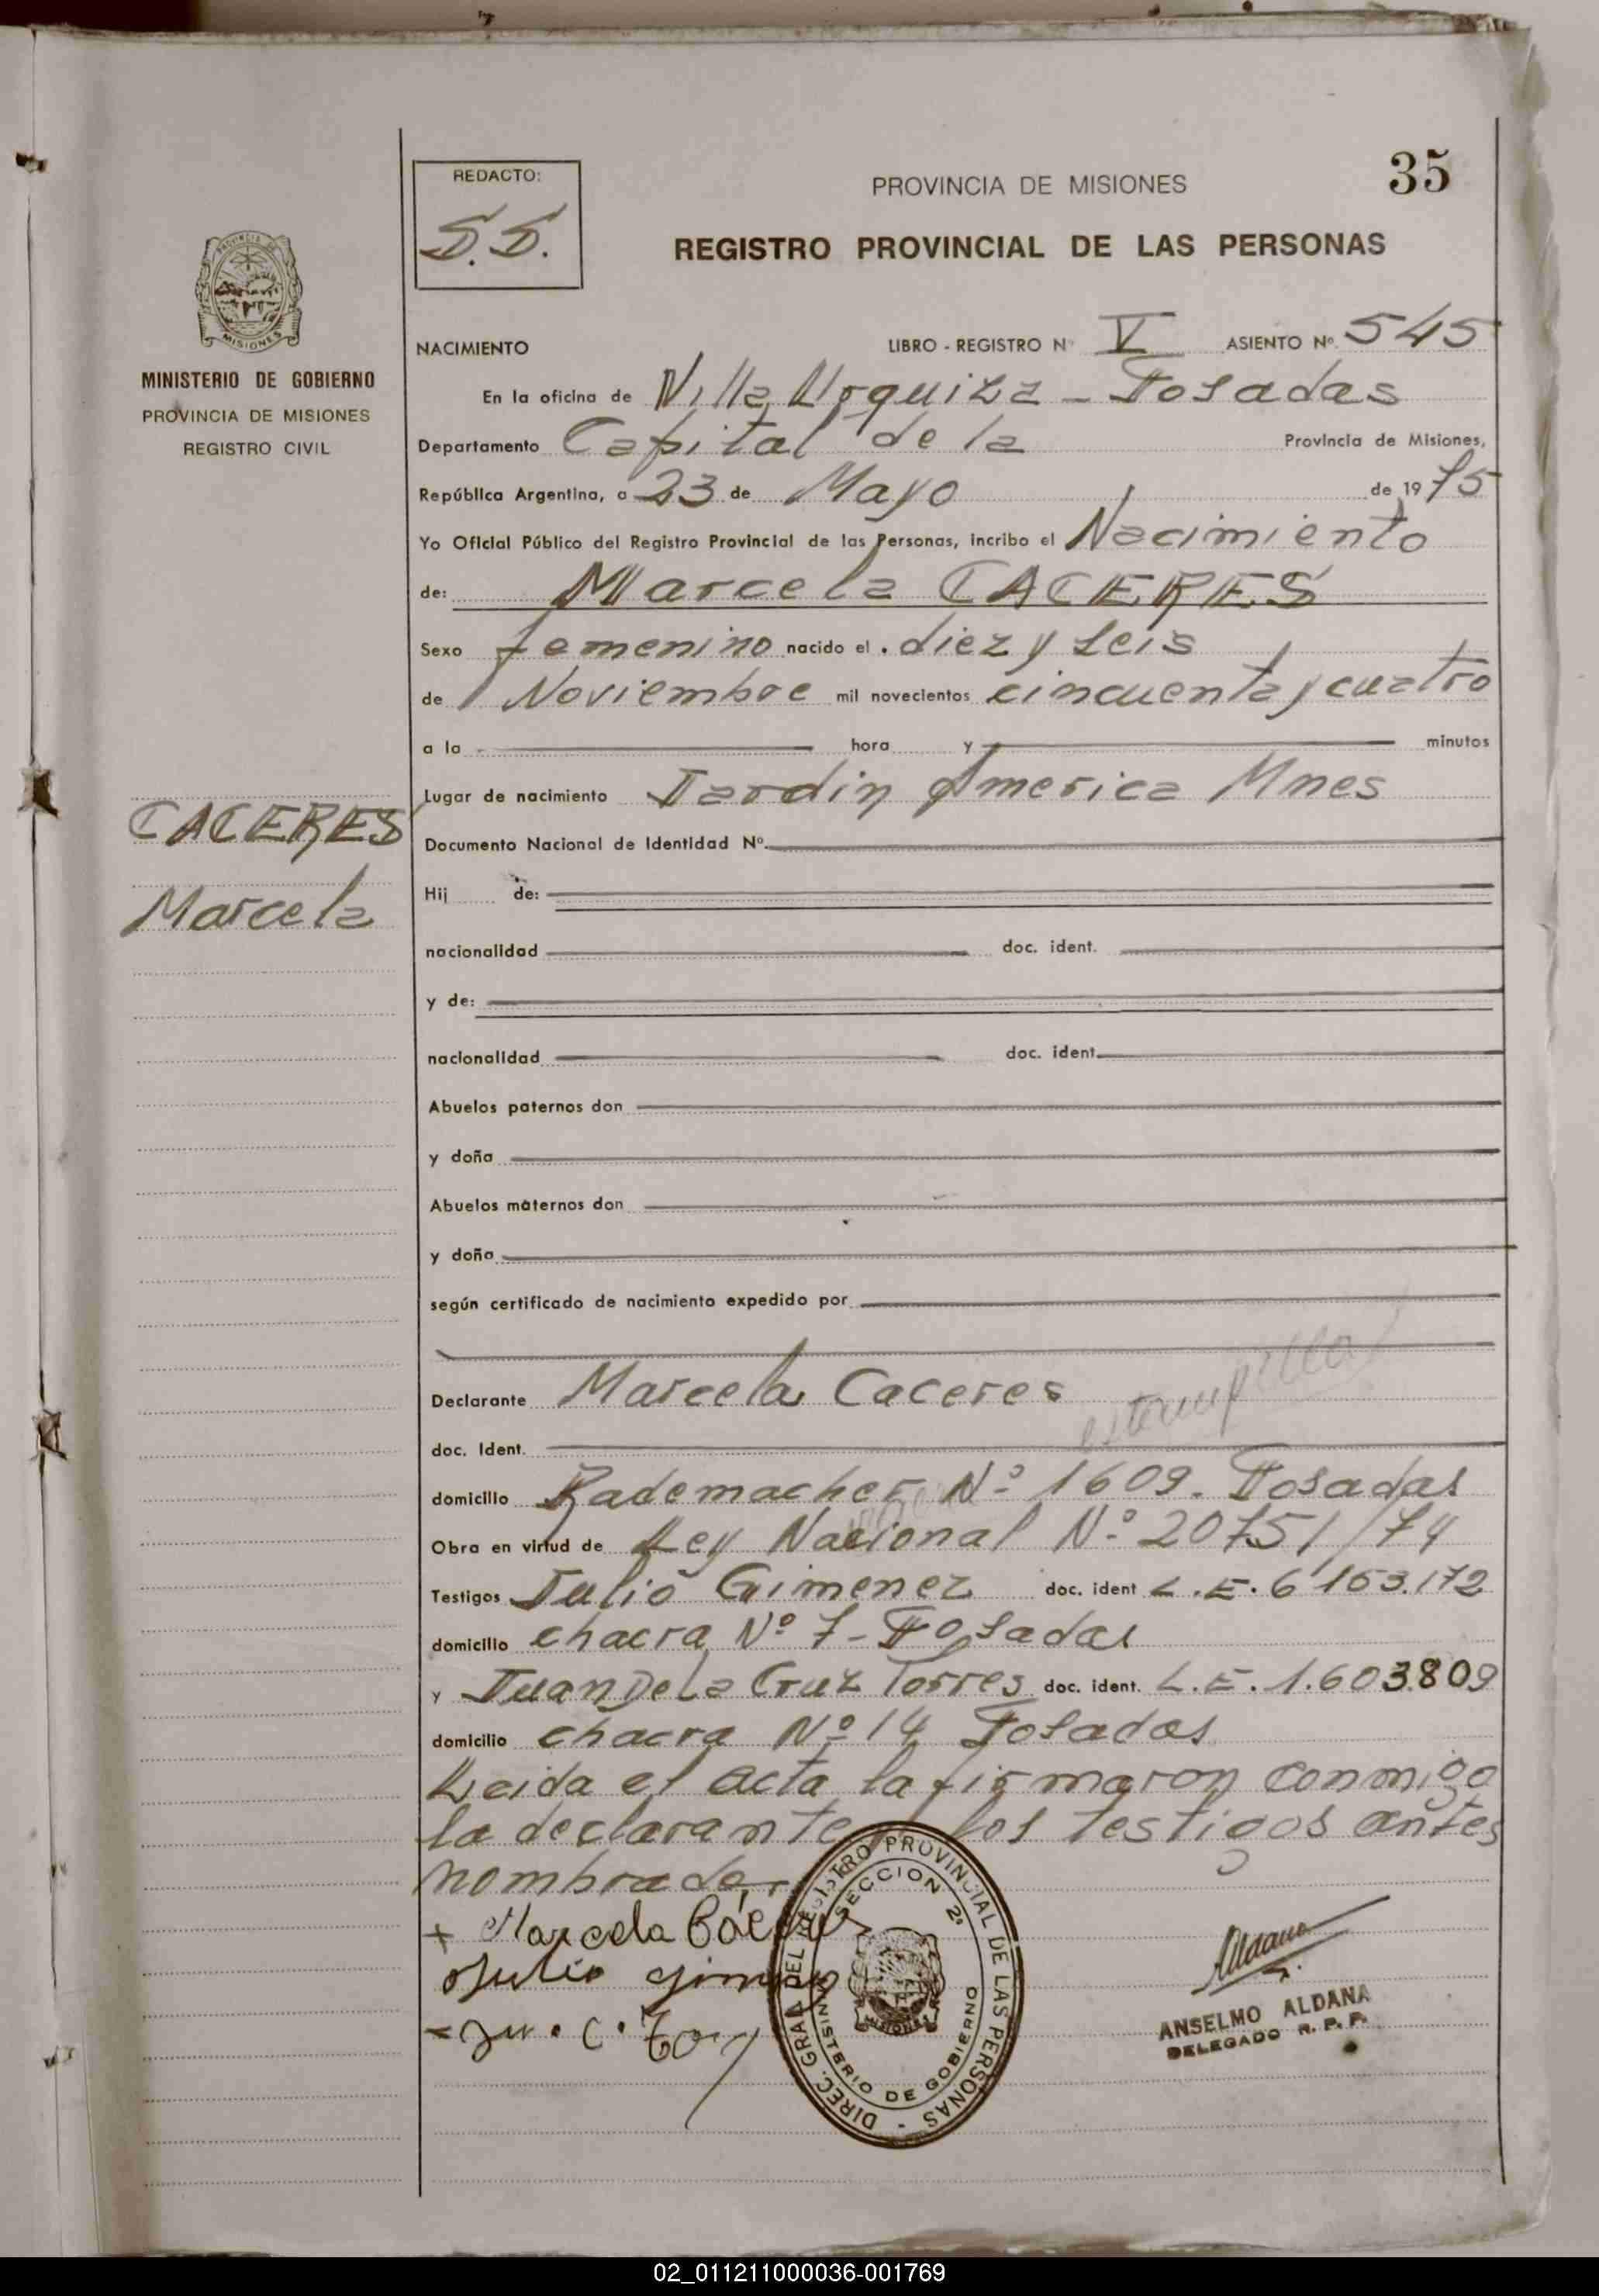 35
REDACTO:
S.S.
PROVINCIA DE MISIONES
REGISTRO PROVINCIAL DE LAS PERSONAS
PROVINCIA DE
MISIONES
MINISTERIO DE GOBIERNO
PROVINCIA DE MISIONES
REGISTRO CIVIL
NACIMIENTO LIBRO - REGISTRO Nº V ASIENTO Nº 545
En la oficina de Villa Urquiza - Posadas
Departamento Capital de la Provincia de Misiones,
República Argentina, a 23 de Mayo de 1975
Yo Oficial Público del Registro Provincial de las Personas, incribo el Nacimiento
de: Marcela CACERES
Sexo femenino nacido el diez y seis
de Noviembre mil novecientos cincuenta y cuatro
a la hora y minutos
Lugar de nacimiento Jardin America Mnes
CACERES
Marcela
Documento Nacional de Identidad Nº
Hij de:
nacionalidad doc. ident.
y de:
nacionalidad doc. ident.
Abuelos paternos don
y doña
Abuelos maternos don
y doña
según certificado de nacimiento expedido por
estampilla
Declarante Marcela Caceres
doc. Ident.
domicilio Rademacher Nº 1609. Posadas
Obra en virtud de Ley Nacional Nº 20751/74
Testigos Julio Gimenez doc. ident L.E. 6163.172
domicilio chacra Nº 7 - Posadas
y Juan De La Cruz Torres doc. ident. L.E. 1.603.809
domicilio chacra Nº 14 Posadas
Leida el acta la firmaron conmigo
la declarante los testigos antes
nombrados
+ Marcela Cáceres
Julio Gimenez
Ju. C. Torr
DIREC. GRAL DEL REGISTRO PROVINCIAL DE LAS PERSONAS -
SECCION 2ª
MINISTERIO DE GOBIERNO
MISIONES
Aldana
ANSELMO ALDANA
DELEGADO R. P. P.
02_011211000036-001769